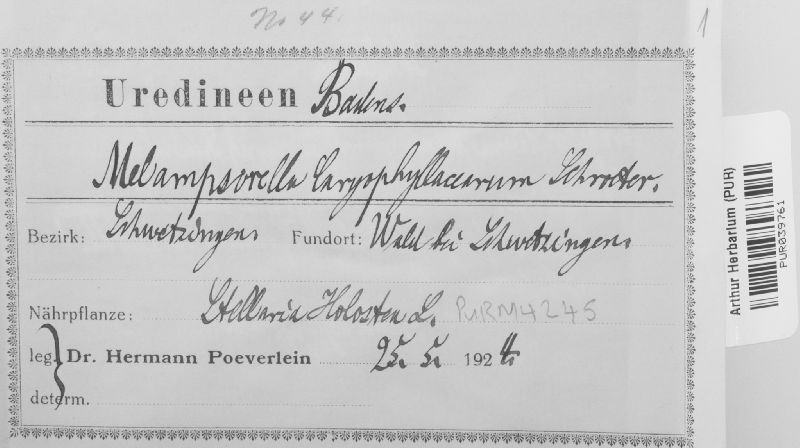 No 44.
1
Uredineen Badens.
Melampsorella Caryophyllacearum Schroeter.
Bezirk: Schwetzingen. Fundort: Wald bei Schwetzingen.
Nährpflanze: Stellaria Holostea L. PURM4245
leg. Dr. Hermann Poeverlein 25. 5. 1924
determ.
Arthur Herbarium (PUR)
PUR039761